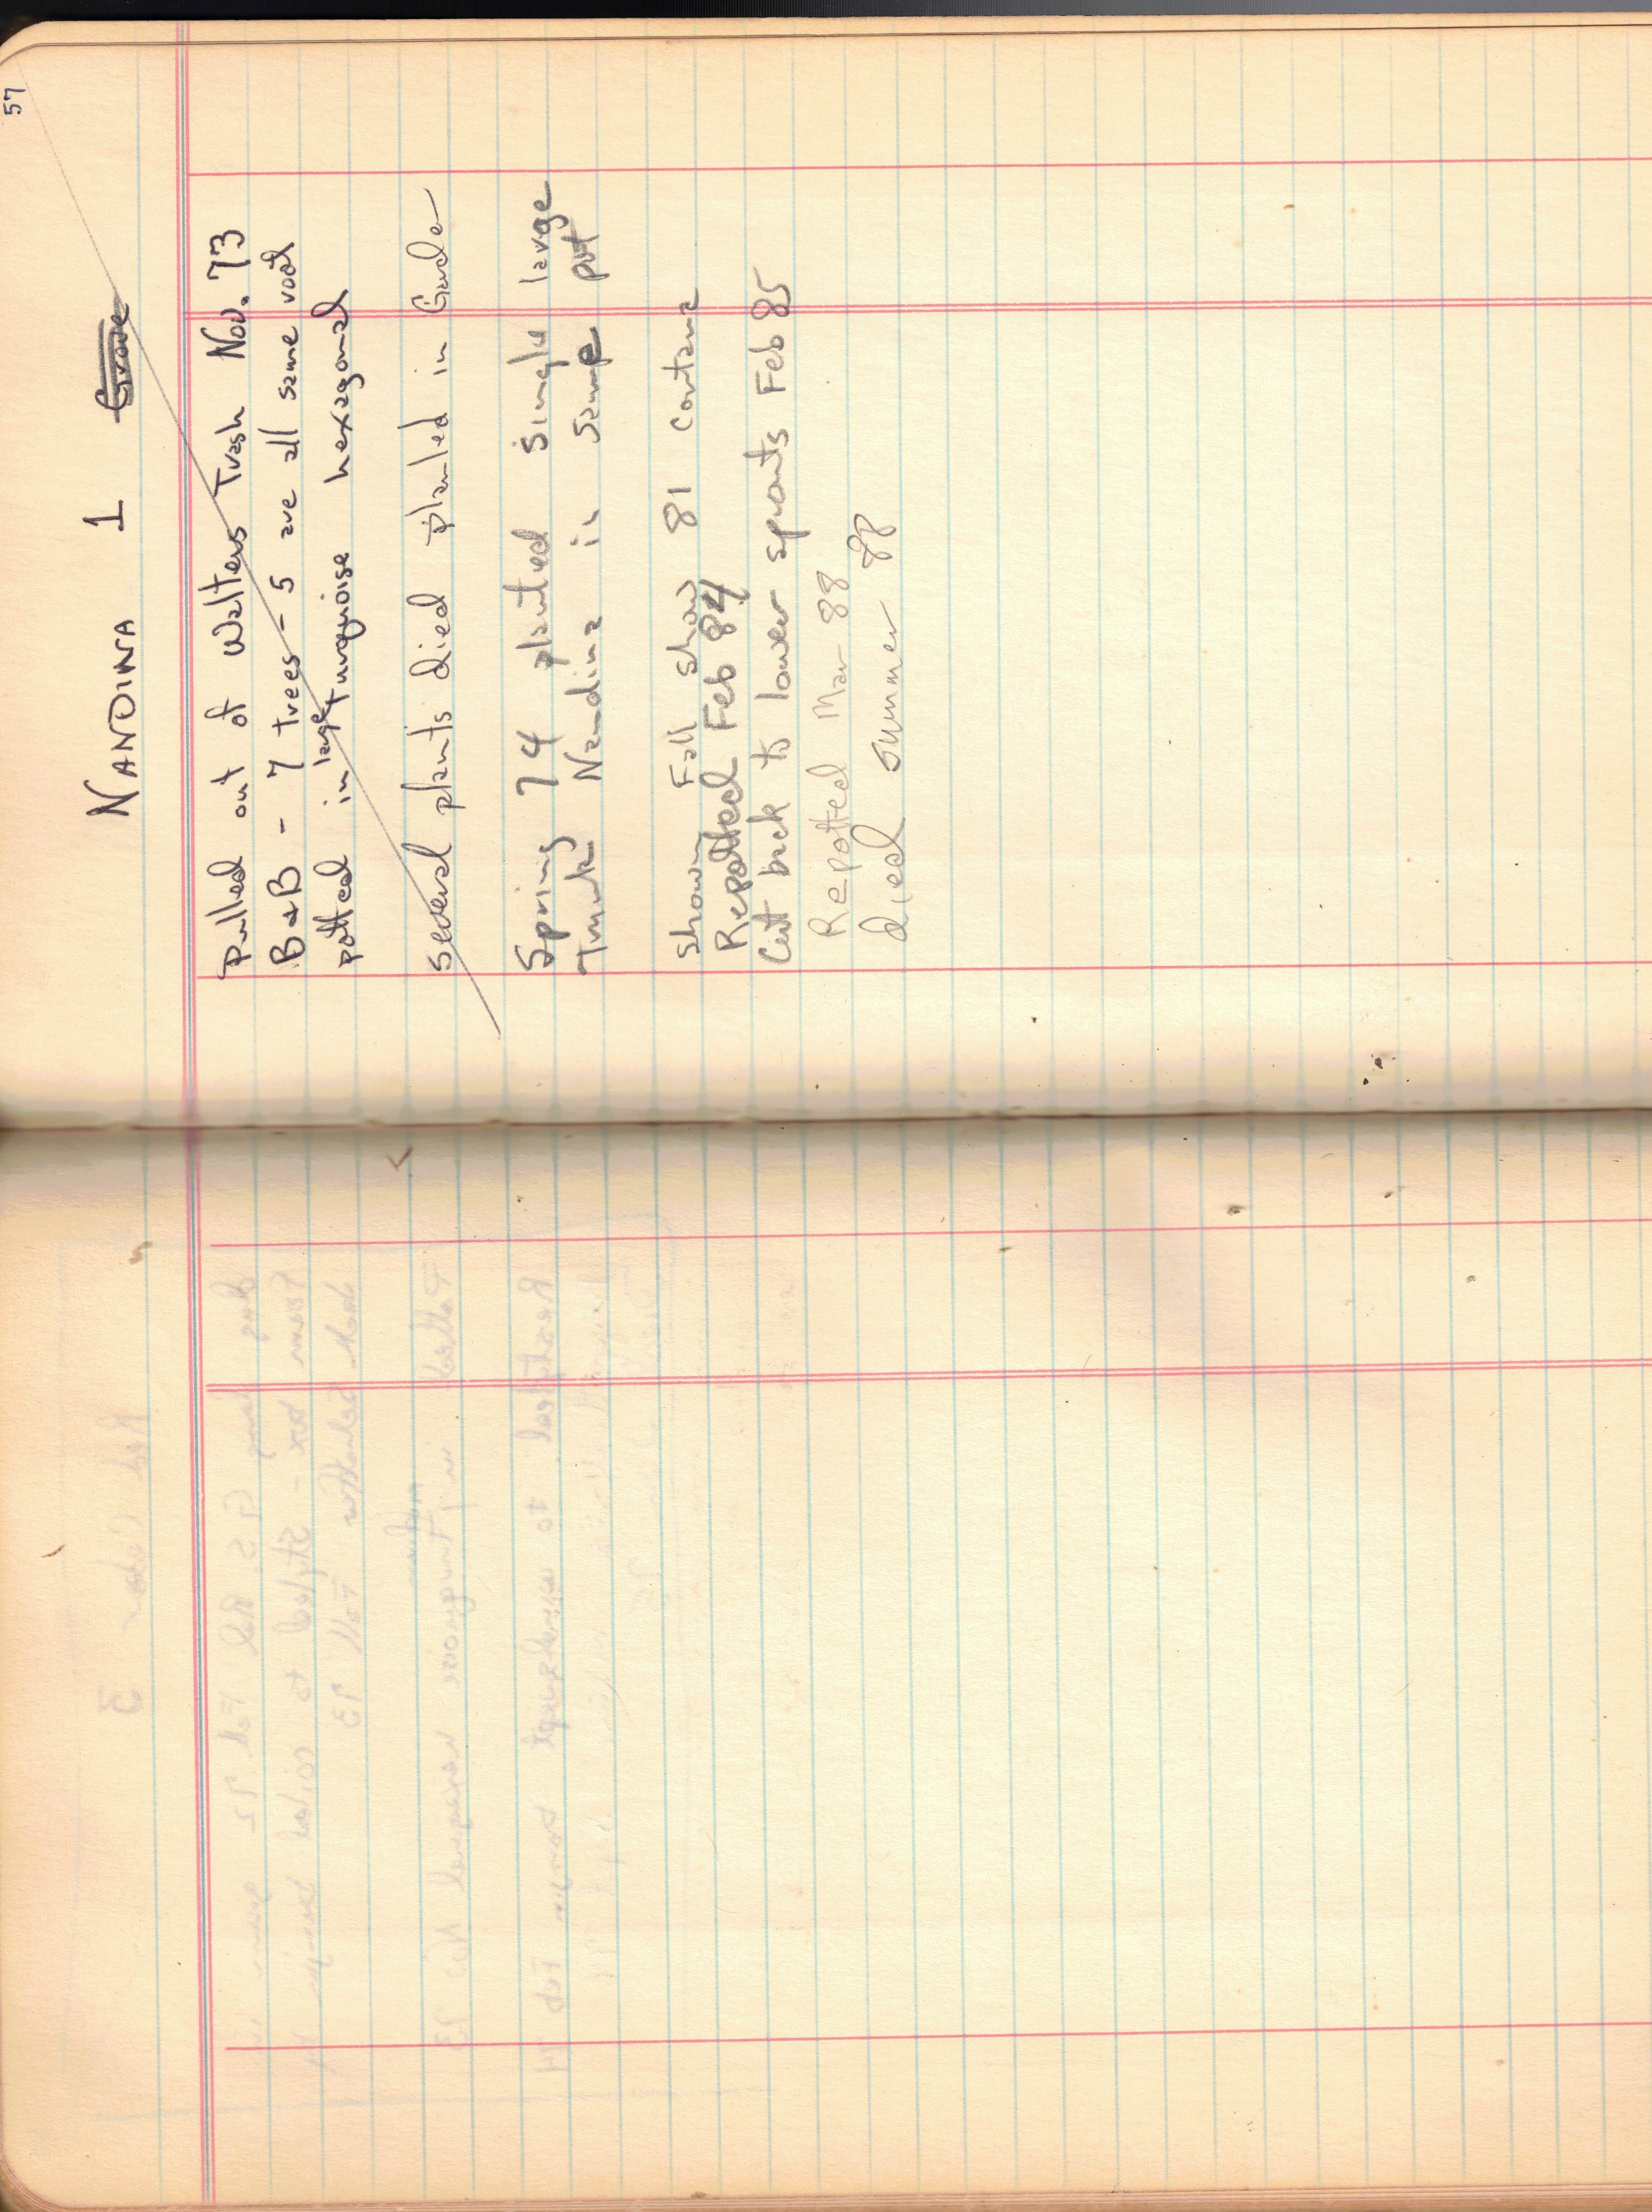 57
NANDINA 1 Grove
Pulled out of Walters Trash Nov. 73
B&B - 7 trees - 5 are all same root
potted in large Turquoise hexagonal
several plants died planted in Garden
Spring 74 planted single large
Trunk Nandina in same pot
Shown Fall show 81
Repotted Feb 84
Cut back to lower sprouts Feb 85
Repotted Mar 88
died summer 88